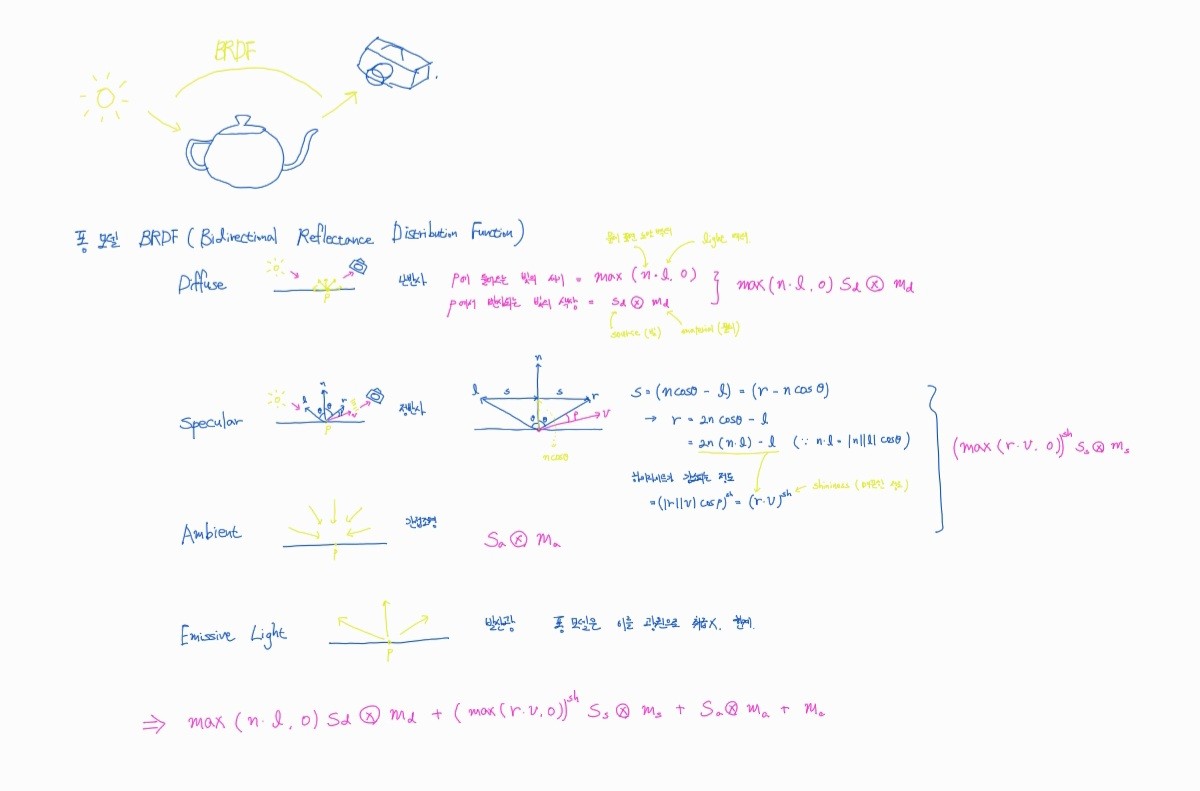 BRDF
퐁 모델 BRDF ( Bidirectional Reflectance Distribution Function )
물체 표면 노멀 벡터
light 벡터
Diffuse
P
난반사
P에 들어오는 빛의 세기 = max (n·l, 0)
P에서 반사되는 빛의 색상 = Sd ⊗ md
max(n·l, 0) Sd ⊗ md
source (빛)
material (물체)
Specular
l n r v
θ θ
P
정반사
n
l s s r
θ θ ρ v
n cosθ
S = (n cosθ - l) = (r - n cosθ)
→ r = 2n cosθ - l
= 2n (n·l) - l (∵ n·l = |n||l| cosθ)
하이라이트가 감소되는 정도
= (|r||v| cosρ)^sh = (r·v)^sh
shininess
(max (r·v, 0))^sh Ss ⊗ ms
Ambient
P
간접조명
Sa ⊗ ma
Emissive Light
P
발산광
퐁 모델은 이를 광원으로 취급X.
⇒ max (n·l, 0) Sd ⊗ md + (max(r·v, 0))^sh Ss ⊗ ms + Sa ⊗ ma + me